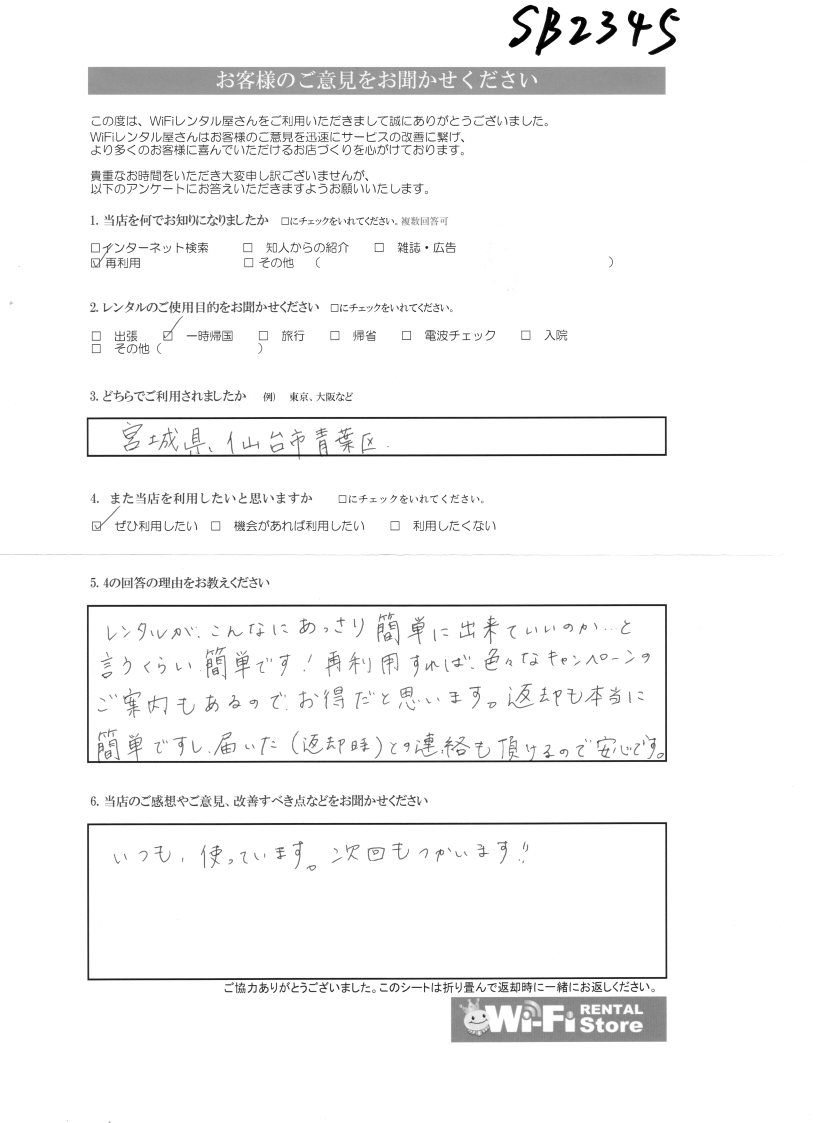 SB2345
お客様のご意見をお聞かせください
この度は、WiFiレンタル屋さんをご利用いただきまして誠にありがとうございました。
WiFiレンタル屋さんはお客様のご意見を迅速にサービスの改善に繋げ、
より多くのお客様に喜んでいただけるお店づくりを心がけております。
貴重なお時間をいただき大変申し訳ございませんが、
以下のアンケートにお答えいただきますようお願いいたします。
1. 当店を何でお知りになりましたか □にチェックをいれてください。複数回答可
□インターネット検索 □ 知人からの紹介 □ 雑誌・広告
☑再利用 □ その他 ( )
2. レンタルのご使用目的をお聞かせください □にチェックをいれてください。
□ 出張 ☑ 一時帰国 □ 旅行 □ 帰省 □ 電波チェック □ 入院
□ その他 ( )
3. どちらでご利用されましたか 例) 東京、大阪など
宮城県、仙台市青葉区.
4. また当店を利用したいと思いますか □にチェックをいれてください。
☑ ぜひ利用したい □ 機会があれば利用したい □ 利用したくない
5. 4の回答の理由をお教えください
レンタルが、こんなにあっさり簡単に出来ていいのか…と
言うくらい簡単です！再利用すれば、色々なキャンペーンの
ご案内もあるので、お得だと思います。返却も本当に
簡単ですし、届いた(返却時)との連絡も頂けるので安心です。
6. 当店のご感想やご意見、改善すべき点などをお聞かせください
いつも、使っています。次回もつかいます!!
ご協力ありがとうございました。このシートは折り畳んで返却時に一緒にお返しください。
Wi-Fi RENTAL Store